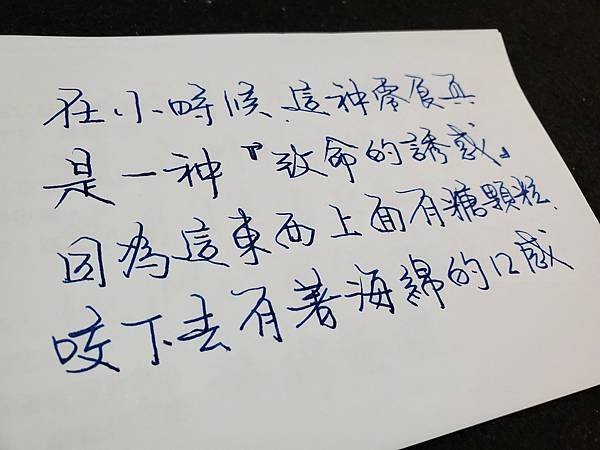 在小時候、這种零食真
是一种『致命的誘惑』
因為這東西上面有糖顆粒、
咬下去有著海綿的口感